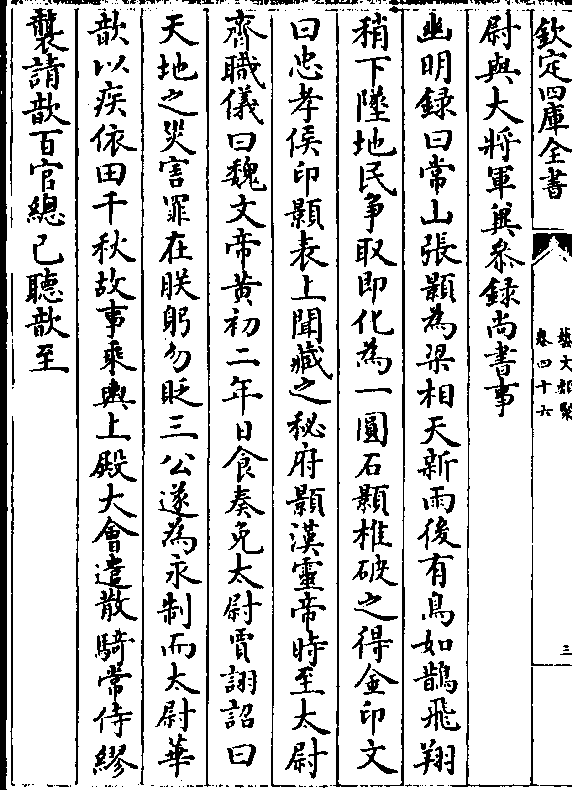 欽定四庫全書
藝文類聚
卷四十六
三
尉與大將軍㒷叅録尚書事
幽明録曰常山張顥為梁相天新雨後有鳥如鵲飛翔
稍下墜地民争取即化為一圓石顥椎破之得金印文
曰忠孝侯印顥表上聞藏之秘府顥漢靈帝時至太尉
齊職儀曰魏文帝黄初二年日食奏免太尉賈詡詔曰
天地之災害罪在朕躬勿貶三公遂為永制而太尉華
歆以疾依田千秋故事乘輿上殿大會遣散騎常侍繆
襲請歆百官總己聽歆至